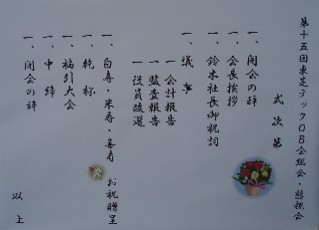 第十五回東芝テックOB会総会・懇親会
式次第
一、開会の辞
一、会長挨拶
一、鈴木社長御祝詞
一、議事
一会計報告
一監査報告
一役員改選
一、白寿・米寿・喜寿 お祝贈呈
一、乾杯
一、福引大会
一、中締
一、閉会の辞
以上